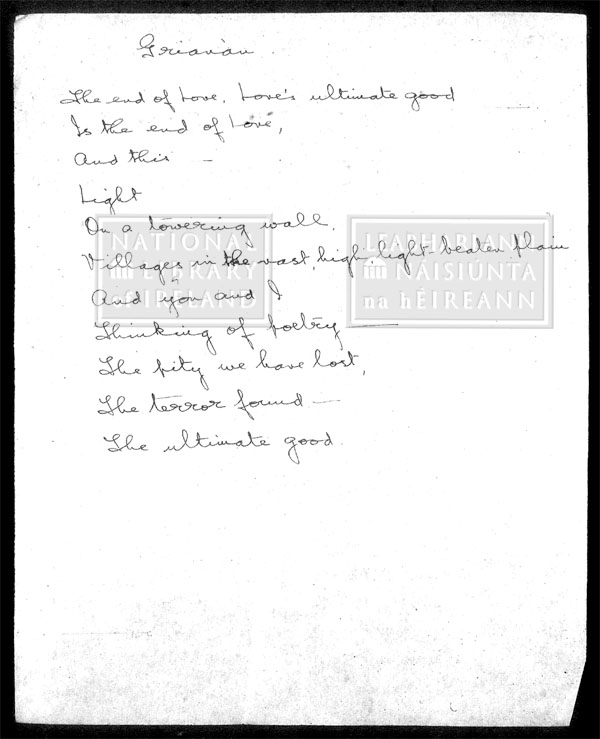 Grianán
The end of love. Love's ultimate good
Is the end of love,
And this —
Light
On a towering wall.
Villages in the vast, high-light-beaten plain
And you and I
Thinking of poetry —
The pity we have lost,
The terror found —
The ultimate good.
NATIONAL LIBRARY of IRELAND
LEABHARLANN NÁISIÚNTA na hÉIREANN